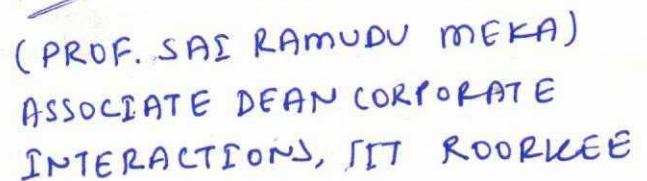 (PROF. SAI RAMUDU MEKA)
ASSOCIATE DEAN CORPORATE
INTERACTIONS, IIT ROORKEE